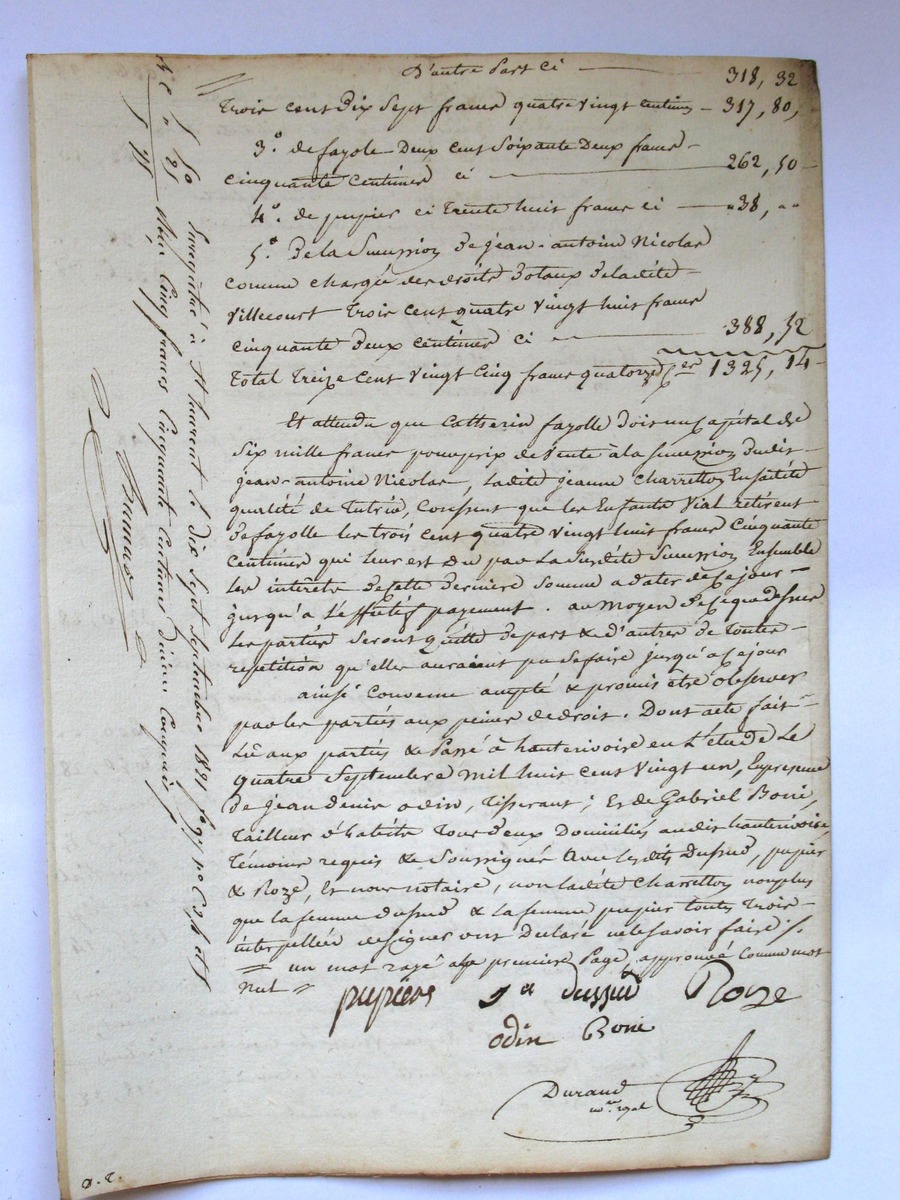 D'autre Part ci — 318, 32
Trois cent Dix Sept francs quatre vingt centimes — 317, 80,
3.º de fayole Deux cent Soixante Deux francs
cinquante centimes ci — 262, 50
4.º de pupier ci Trente huit francs ci — 38, ..
5.º De la Succession De jean-antoine Nicolas
comme chargé des droits Dotaux De ladite
Villecourt Trois cent quatre vingt huit francs
cinquante Deux centimes ci — 388, 52
Total Treize cent Vingt Cinq francs quatorze Cmes 1325, 14
Et attendu que Catherin fayolle Dois un Capital de
Six mille francs pour prix de Vente à la Succession Dudit
jean-antoine Nicolas, Ladite jeanne Charretton En sadite
qualité de Tutrice, Consent que les Enfants Vial retirent
De fayolle les trois cent quatre vingt huit francs Cinquante
Centimes qui leur est Du par La Susdite Succession Ensemble
Les intérêts De cette Derniere Somme a dater de Ce jour
jusqu'a L'effectif payement. au Moyen De Ce que dessus
Les parties Seront quitte de part & d'autres de toutes
repetition qu'elles auraient pu Se faire jusqu'a Ce jour
ainsi Convenu accepté & promis être observer
par les parties aux peines de droit. Dont acte fait
Lû aux parties & Passé à hauterivoire en L'étude Le
quatre Septembre mil huit cent Vingt un, En presence
De jean denis odin, Tisserant; Et de Gabriel Boné,
Tailleur d'habits Tous Deux Domiciliés audit hauterivoire,
Témoins requis & Soussignés Avec Lesdits Dussud, pupier
& Roze, Et nous notaire, non Ladite Charretton non plus
que la femme Dussud & La femme pupier toutes Trois
interpellées de signer ont Declaré ne le savoir faire ./.
= un mot rayé a la premiere Page, approuvé Comme mot
Nul =
pupier Dussud Roze
odin Boné
Durand
nre. royal
Enregistré à St Laurent le dix Sept Septembre 1821 fo 97 Ro C 3, 4 et 5
Reçu Cinq francs Cinquante Centimes dixième Compris
5 50
55
a. t.